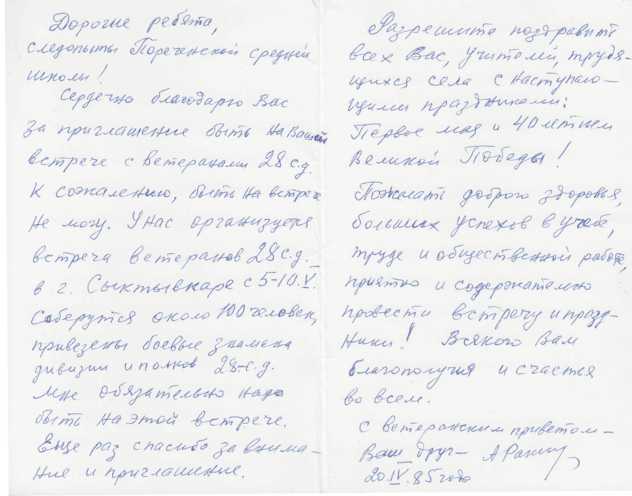 Дорогие ребята,
следопыты Пореченской средней
школы!
Сердечно благодарю Вас
за приглашение быть на Вашей
встрече с ветеранами 28 с.д.
К сожалению, быть на встрече
не могу. У нас организуется
встреча ветеранов 28 с.д. –
в г. Сыктывкаре с 5-10.V.
Соберутся около 100 человек,
привезены боевые знамена
дивизии и полков 28-с.д.
Мне обязательно надо
быть на этой встрече.
Еще раз спасибо за внима-
ние и приглашение.
Разрешите поздравить
всех Вас, учителей, трудя-
щихся села с наступаю-
щими праздниками:
Первое мая и 40 летием
Великой Победы!
Пожелать доброго здоровья,
больших успехов в учебе,
труде и общественной работе,
приятно и содержательно
провести встречу и празд-
ники! Всякого Вам
благополучия и счастья
во всем.
с ветеранским приветом –
Ваш друг –
20.IV.85 года